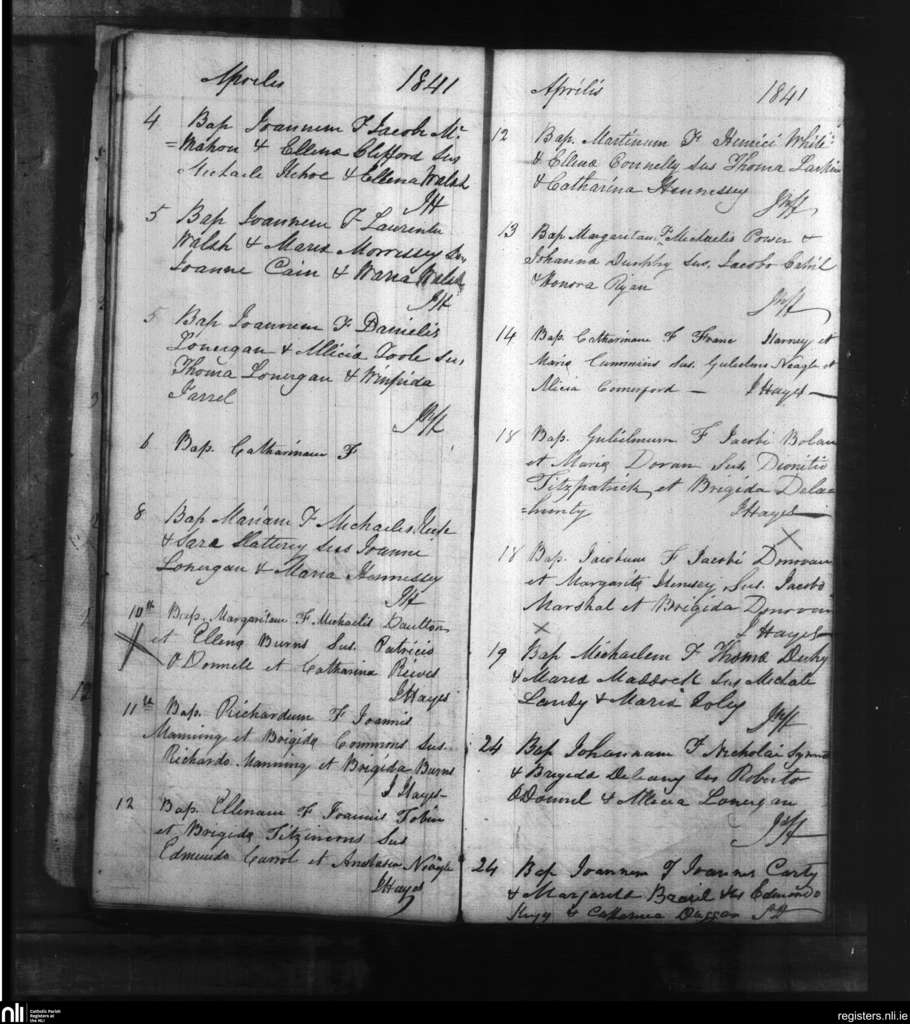 Aprilis 1841
4 Bap Joannem F Jacobi Mc
=Mahon & Ellena Clifford Sus
Michaele Kehoe & Ellena Walsh
JH
5 Bap Joannem F Laurentii
Walsh & Maria Morrissey Sus
Joanne Cain & Maria Walsh
JH
5 Bap Joannem F Danielis
Lonergan & Allicia Toole sus
Thoma Lonergan & Winifrida
Farrel
6 Bap. Catharinam F
8 Bap Mariam F Michaelis
& Sara Slattery Sus Joanne
Lonergan & Maria Hennessey
JH
10th Bap. Margaritam F. Michaelis Daulton
et Ellena Burns Sus. Patricio
O Donnell et Catharina Reeves
J Hayes
11th Bap. Richardum F Joannis
Manning et Brigida Commons Sus.
Richardo Manning et Brigida Burns
J Hayes
12 Bap. Ellenam F Joannis Tobin
et Brigida Fitzimons Sus
Edmundo Carrol et Anastasia Neagle
J Hayes
Aprilis 1841
12 Bap. Martinum F Henrici White
& Ellena Connelly Sus Thoma Larkin
& Catharina Hennessey
13 Bap Margaritam F Michaelis Power &
Johanna Dunphy Sus. Jacobo Cahil
& Honora Ryan
14 Bap. Catharinam F Franc Harney et
Maria Cummins Sus. Gulielmo Neagle et
Alicia Comerford — J Hayes
18 Bap. Gulielmum F Jacobi Bolan
et Maria Doran Sus Dionitio
Fitzpatrick et Brigida Dela=
=hunty J Hayes
18 Bap. Jacobum F Jacobi Donovan
et Margarita Henesey Sus. Jacobo
Marshal et Brigida Donovan
J Hayes
19 Bap Michaelem F Thoma
& Maria Maddock Sus Michale
Landy & Maria Foley
24 Bap Johannam F Nicholai
& Brigida Deleany Sus Roberto
O Donnel & Allicia Lonergan
24 Bap Joannem F Joannis Carty
& Margarett Sus Edmundo
& Catherina Duggan
nli
Catholic Parish
Registers at
the NLI
registers.nli.ie